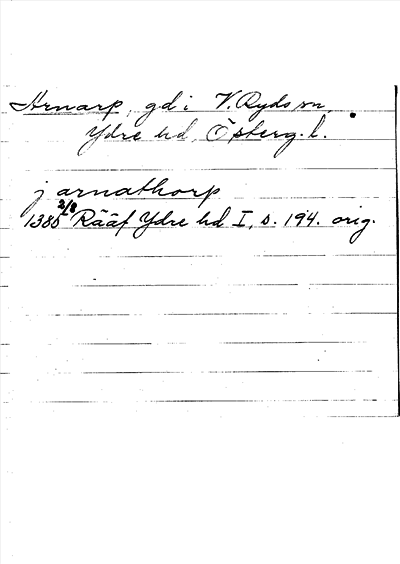 Arnarp, gd i V. Ryds sn,
Ydre hd, Österg. l.
j arnathorp
1385 2/8 Rääf Ydre hd I, s. 194. orig.